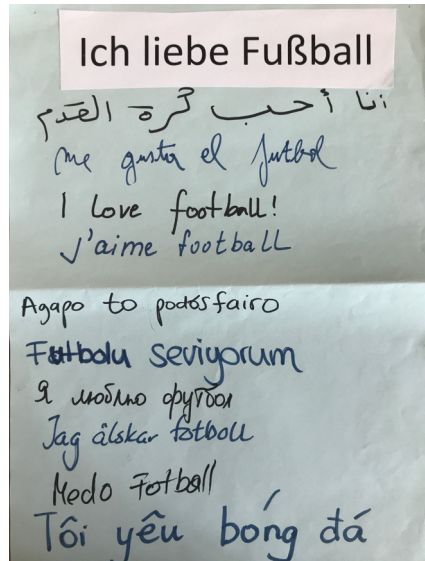 Ich liebe Fußball
انا أحب كرة القدم
me gusta el futbol
I love football!
J'aime football
Agapo to podosfairo
Futbolu seviyorum
Я люблю футбол
Jag älskar fotboll
Medo Fotball
Tôi yêu bóng đá